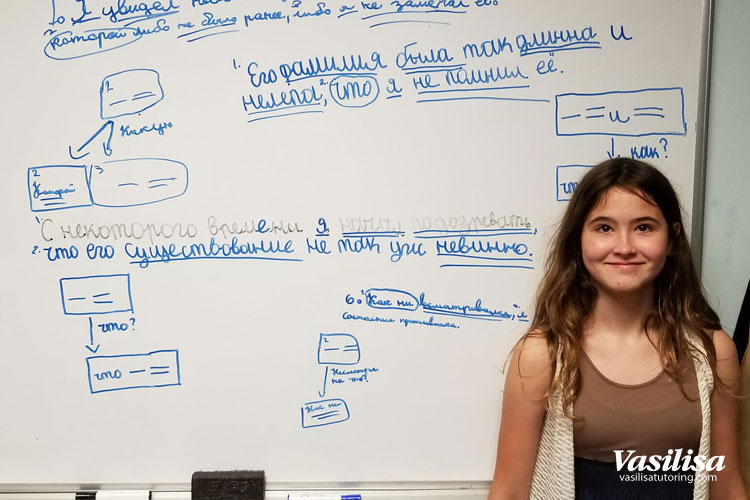 увидел
которой либо не было ранее, либо я не замечал её.
1. Его фамилия была так длинна и
нелепа, 2. что я не помнил её.
1
какую
2 3
которой
= и =
как?
что
1. С некоторого времени я начал подозревать,
2. что его существование не так уж невинно.
что?
что
6. Как ни всматривался, я
состояния противника.
2
на что?
Как ни
Vasilisa
vasilisatutoring.com